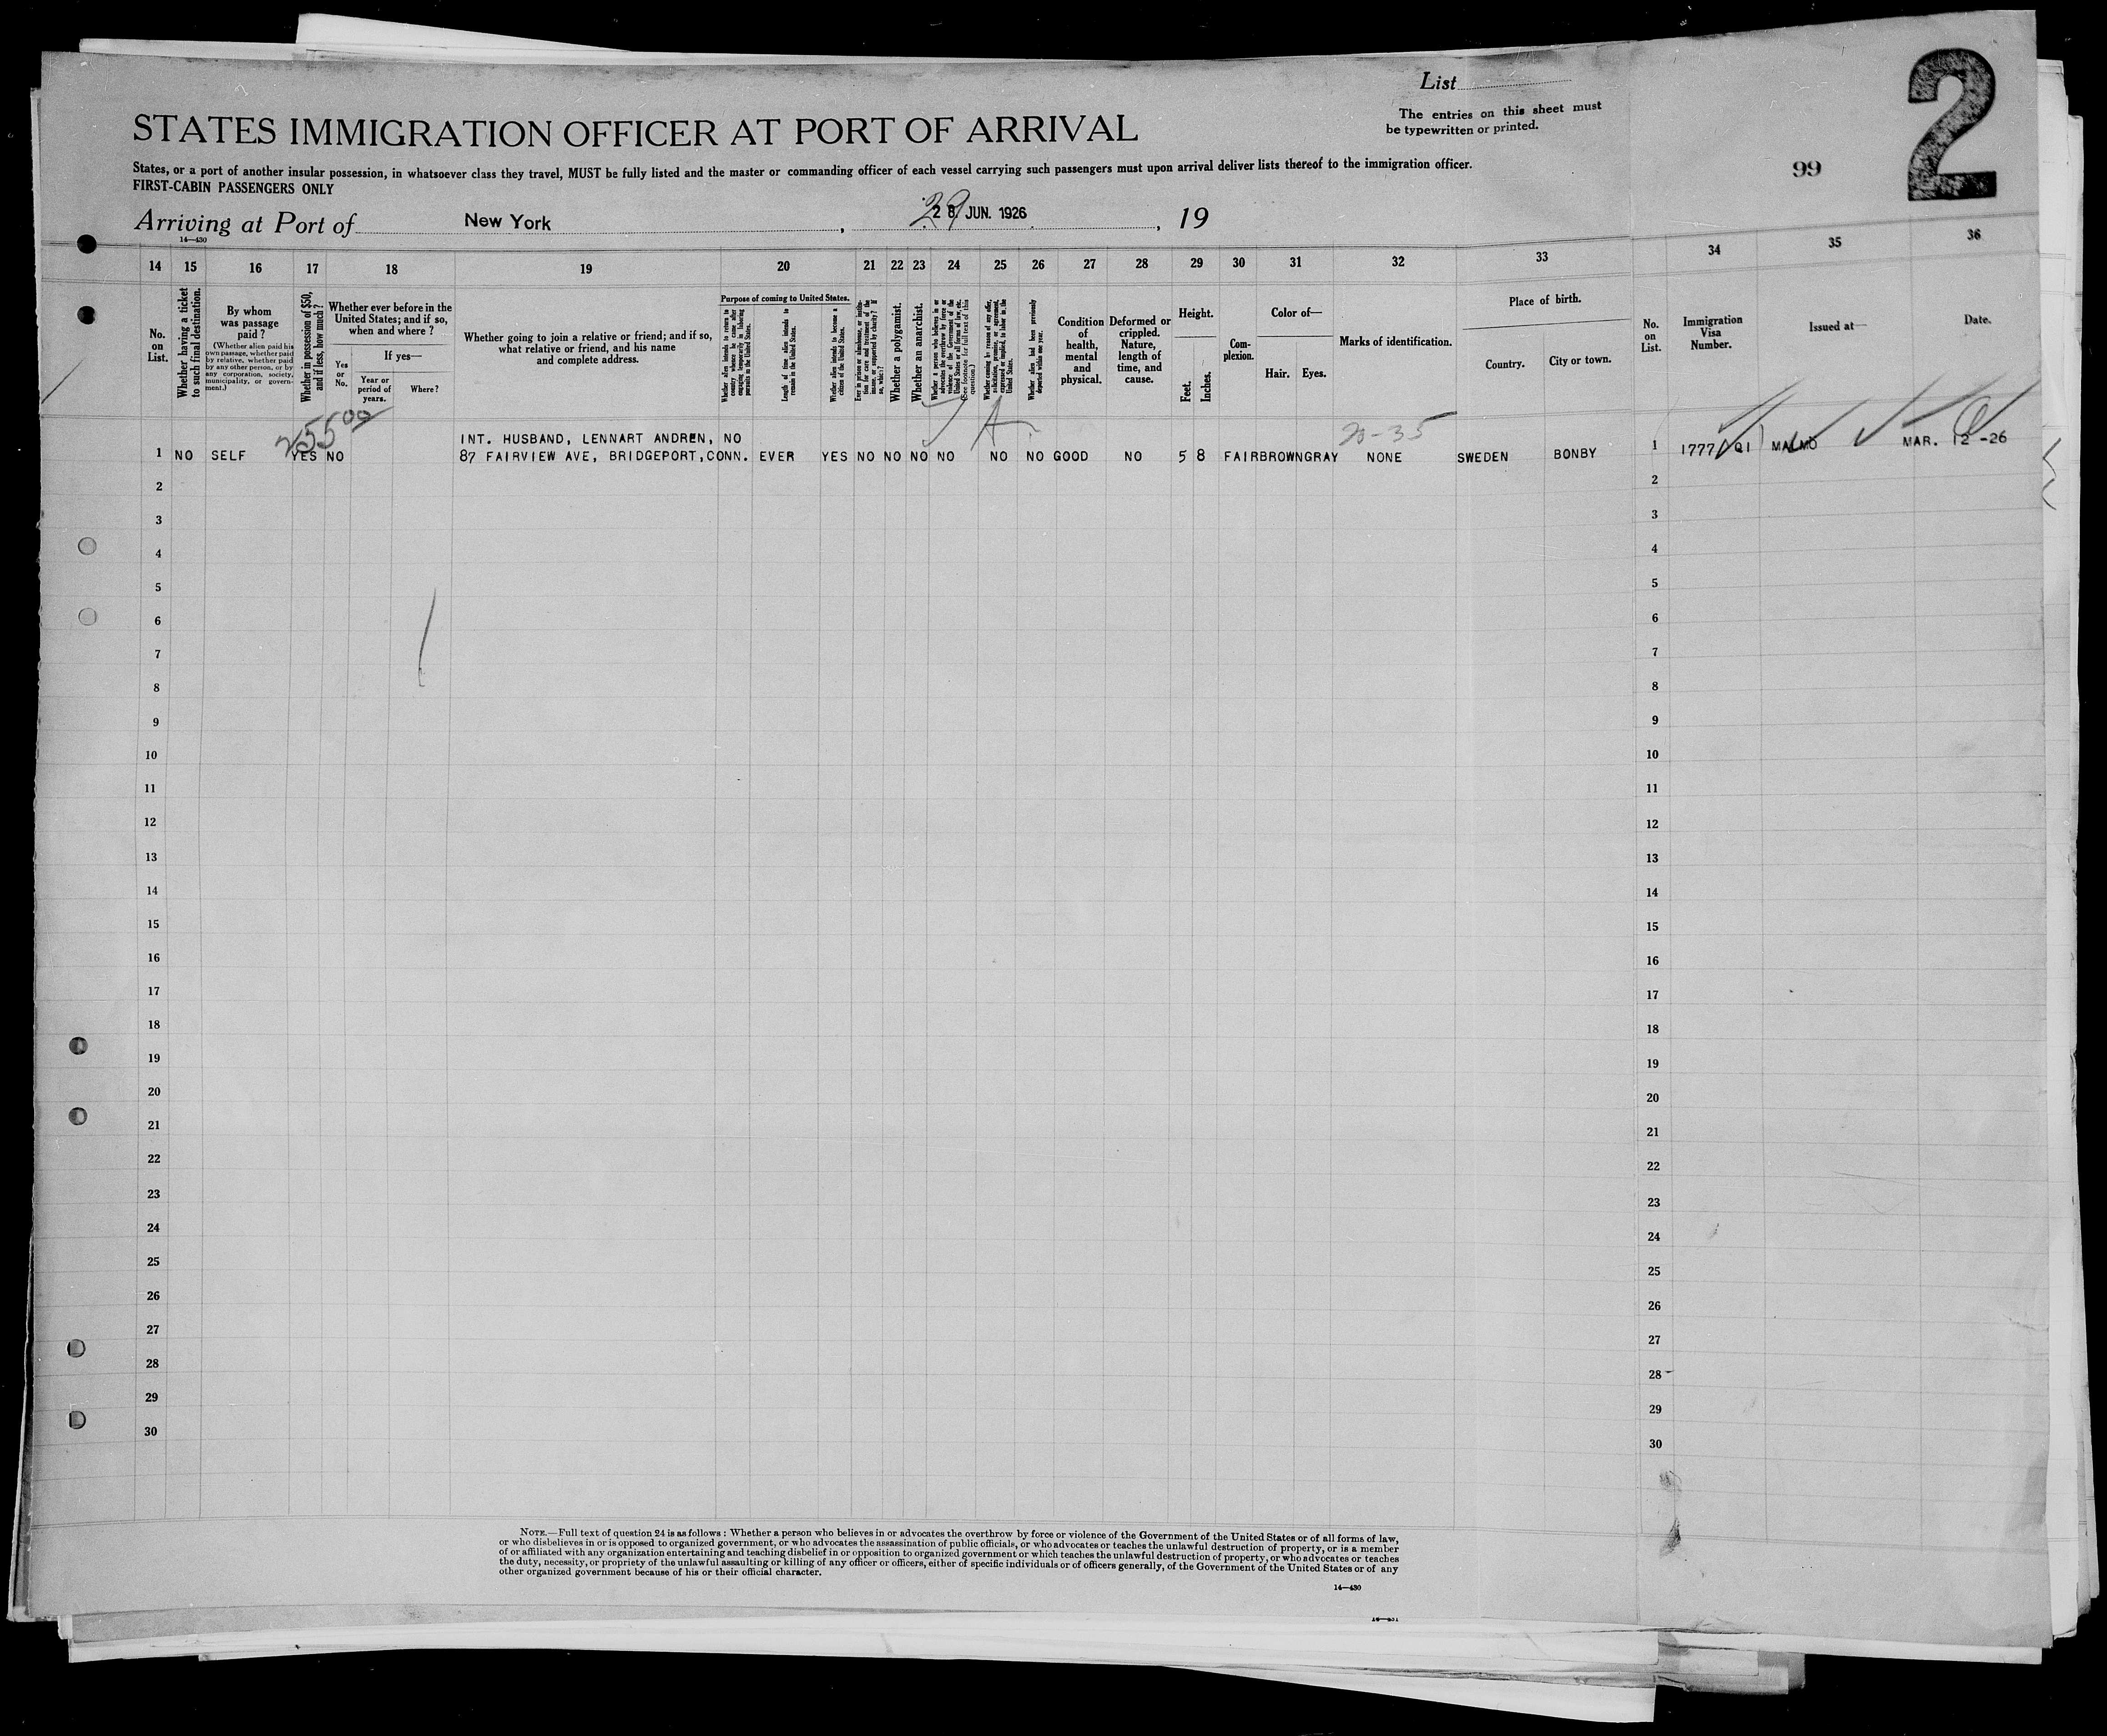 List
The entries on this sheet must
be typewritten or printed.
2
99
STATES IMMIGRATION OFFICER AT PORT OF ARRIVAL
States, or a port of another insular possession, in whatsoever class they travel, MUST be fully listed and the master or commanding officer of each vessel carrying such passengers must upon arrival deliver lists thereof to the immigration officer.
FIRST-CABIN PASSENGERS ONLY
Arriving at Port of New York, 28 JUN. 1926, 19
14—430
14 15 16 17 18 19 20 21 22 23 24 25 26 27 28 29 30 31 32 33 34 35 36
No. on List.
Whether having a ticket to such final destination.
By whom was passage paid?
(Whether alien paid his own passage, whether paid by relative, whether paid by any other person, or by any corporation, society, municipality, or government.)
Whether in possession of $50, and if less, how much?
Whether ever before in the United States; and if so, when and where?
Yes or No.
If yes—
Year or period of years.
Where?
Whether going to join a relative or friend; and if so, what relative or friend, and his name and complete address.
Purpose of coming to United States.
Whether alien intends to return to country whence he came after engaging temporarily in laboring pursuits in the United States.
Length of time alien intends to remain in the United States.
Whether alien intends to become a citizen of the United States.
Ever in prison or almshouse, or institution for care and treatment of the insane, or supported by charity? If so, which?
Whether a polygamist.
Whether an anarchist.
Whether a person who believes in or advocates the overthrow by force or violence of the Government of the United States or all forms of law, etc. (See footnote for full text of this question.)
Whether coming by reason of any offer, solicitation, promise, or agreement, expressed or implied, to labor in the United States.
Whether alien had been previously deported within one year.
Condition of health, mental and physical.
Deformed or crippled. Nature, length of time, and cause.
Height.
Feet. Inches.
Complexion.
Color of—
Hair. Eyes.
Marks of identification.
Place of birth.
Country. City or town.
No. on List.
Immigration Visa Number.
Issued at—
Date.
25500
20-35
INT. HUSBAND, LENNART ANDREN, NO
1 NO SELF YES NO 87 FAIRVIEW AVE, BRIDGEPORT, CONN. EVER YES NO NO NO NO NO NO GOOD NO 5 8 FAIR BROWN GRAY NONE SWEDEN BONBY 1 1777 QI MALMO MAR. 12 -26
2 2
3 3
4 4
5 5
6 6
7 7
8 8
9 9
10 10
11 11
12 12
13 13
14 14
15 15
16 16
17 17
18 18
19 19
20 20
21 21
22 22
23 23
24 24
25 25
26 26
27 27
28 28
29 29
30 30
NOTE.—Full text of question 24 is as follows: Whether a person who believes in or advocates the overthrow by force or violence of the Government of the United States or of all forms of law,
or who disbelieves in or is opposed to organized government, or who advocates the assassination of public officials, or who advocates or teaches the unlawful destruction of property, or is a member
of or affiliated with any organization entertaining and teaching disbelief in or opposition to organized government or which teaches the unlawful destruction of property, or who advocates or teaches
the duty, necessity, or propriety of the unlawful assaulting or killing of any officer or officers, either of specific individuals or of officers generally, of the Government of the United States or of any
other organized government because of his or their official character.
14—430